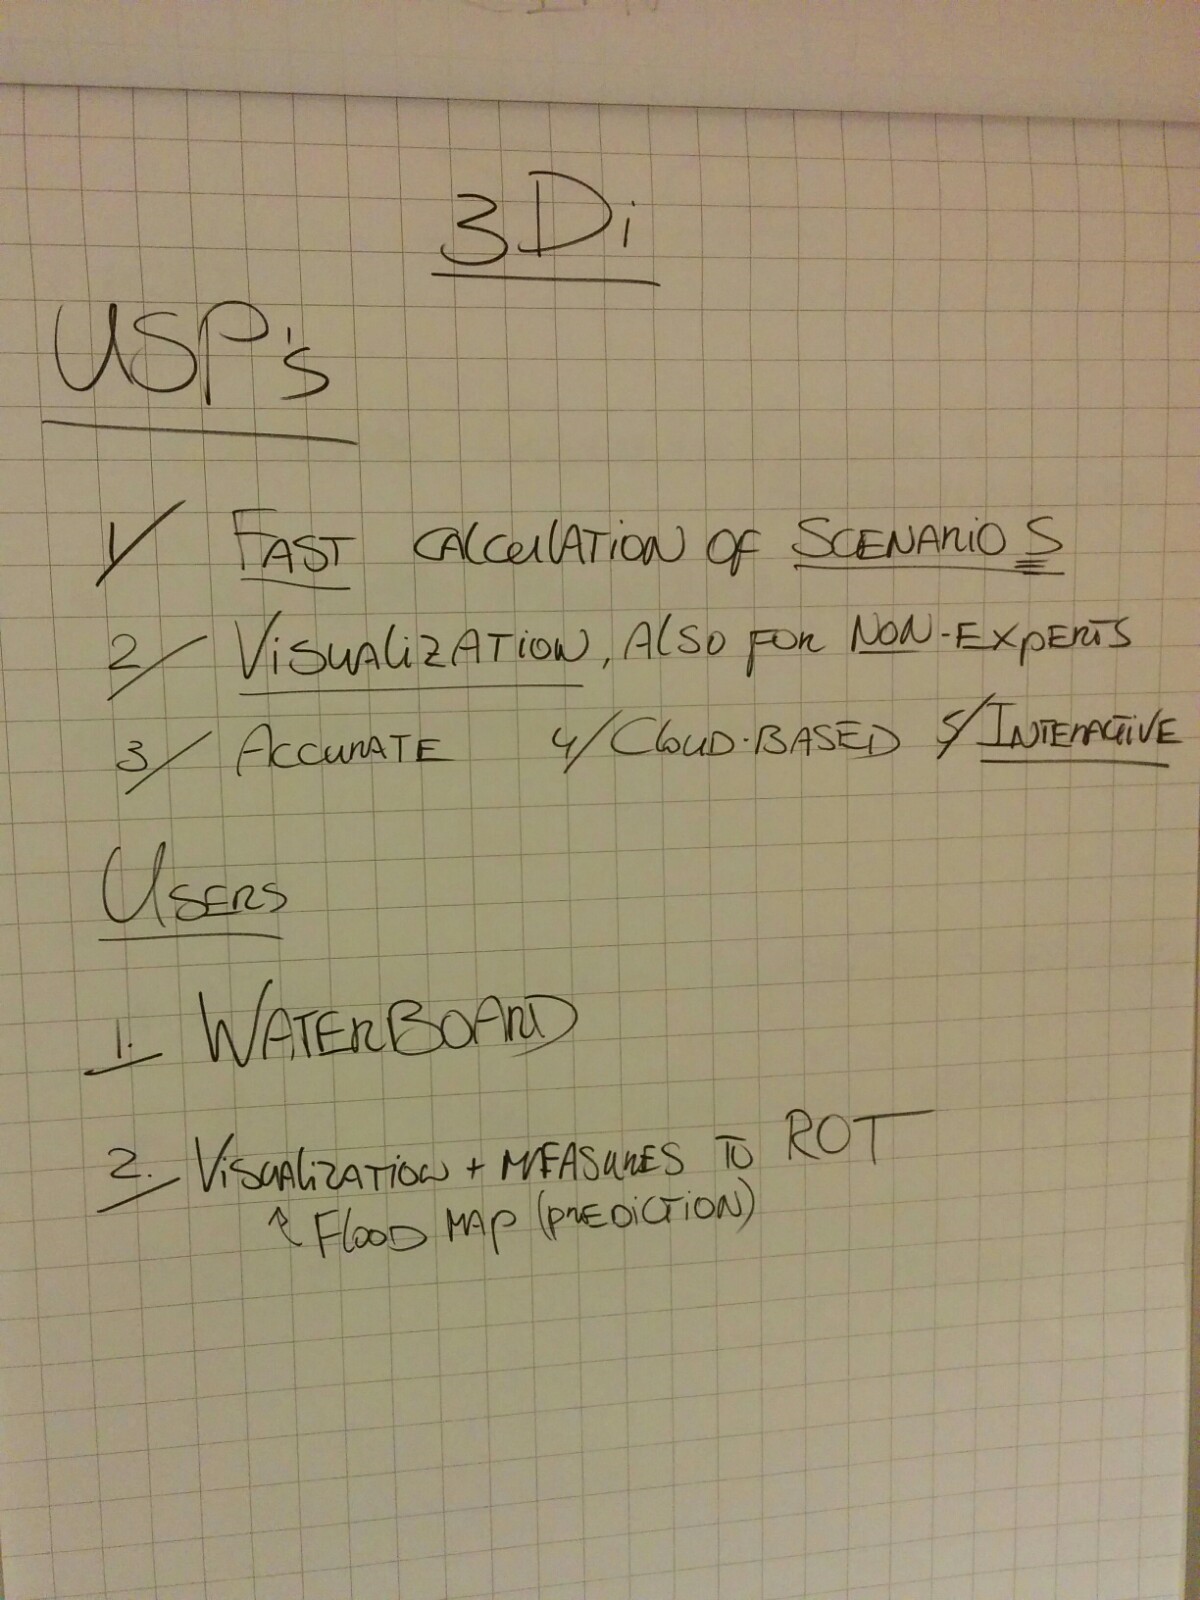 3Di
USP's
1/ FAST CALCULATION OF SCENARIOS
2/ VISUALIZATION, ALSO FOR NON-EXPERTS
3/ ACCURATE 4/ CLOUD-BASED 5/ INTERACTIVE
USERS
1. WATERBOARD
2. VISUALIZATION + MEASURES TO ROT
FLOOD MAP (PREDICTION)